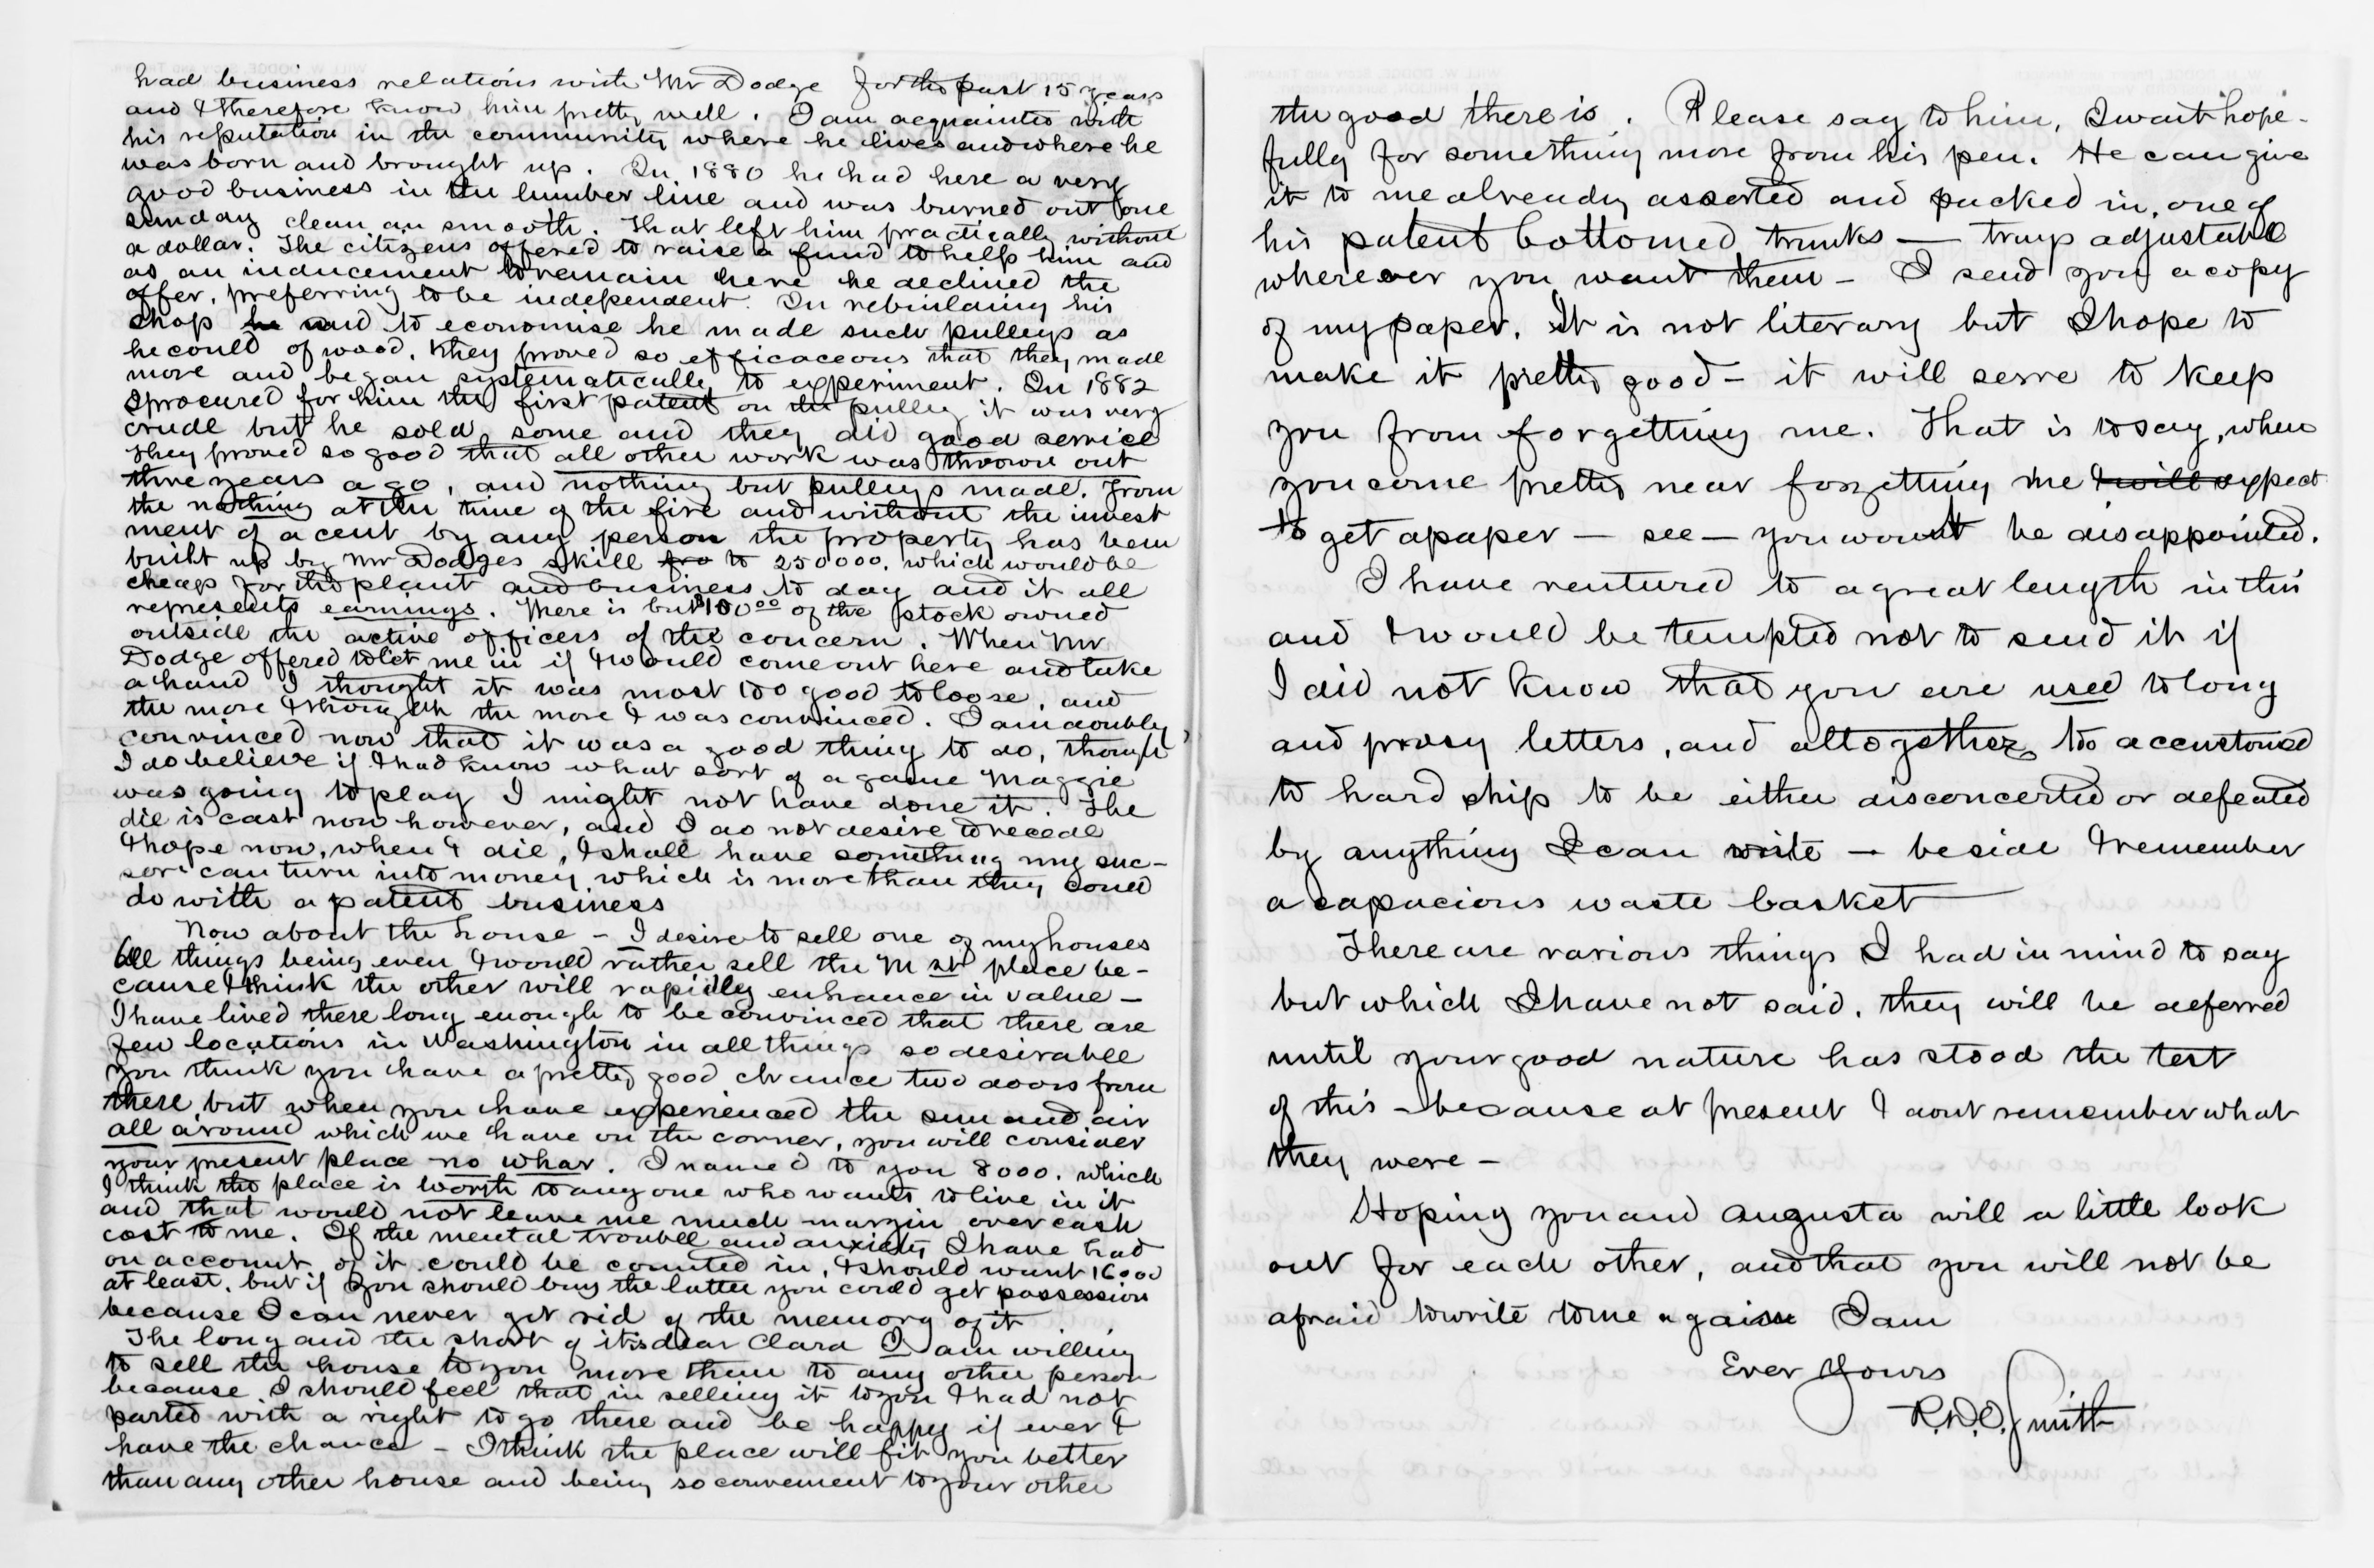 had business relations with Mr Dodge for the past 15 years
and I therefore know him pretty well. I am acquainted with
his reputation in the community where he lives and where he
was born and brought up. In 1880 he had here a very
good business in the lumber line and was burned out one
sunday clean an smooth. That left him practically without
a dollar. The citizens offered to raise a fund to help him and
as an inducement to remain here he declined the
offer, preferring to be independent. In rebuilding his
shop he and to economise he made such pulleys as
he could of wood. They proved so efficaceous that they made
more and began systematically to experiment. In 1882
I procured for him the first patent on the pulley it was very
crude but he sold some and they did good service
They proved so good that all other work was thrown out
three years ago, and nothing but pulleys made. From
the nothing at the time of the fire and without the invest
ment of a cent by any person the property has been
built up by Mr Dodges skill to 250000. which would be
cheap for the plant and business to day and it all
represents earnings. There is but $100.00 of the stock owned
outside the active officers of the concern. When Mr
Dodge offered to let me in if I would come out here and take
a hand I thought it was most too good to loose, and
the more I thought the more I was convinced. I am doubly
convinced now that it was a good thing to do, though
I do believe if I had know what sort of a game Maggie
was going to play I might not have done it. The
die is cast now however, and I do not desire to recede
I hope now, when I die, I shall have something my suc-
sors can turn into money which is more than they could
do with a patent business
Now about the house - I desire to sell one of my houses
All things being even I would rather sell the M st place be-
cause I think the other will rapidly enhance in value -
I have lived there long enough to be convinced that there are
few locations in Washington in all things so desirable
you think you have a pretty good chance two doors from
there, but when you have experienced the sun and air
all around which we have on the corner, you will consider
your present place no whar. I named to you 8000. which
I think the place is worth to any one who wants to live in it
and that would not leave me much margin over cash
cost to me. If the mental trouble and anxiety I have had
on account of it could be counted in, I should want 16000
at least, but if you should buy the latter you could get possession
because I can never get rid of the memory of it
The long and the short of it is dear Clara I am willing
to sell the house to you more than to any other person
because I should feel that in selling it to you I had not
parted with a right to go there and be happy if ever I
have the chance - I think the place will fit you better
than any other house and being so convenient to your other
the good there is. Please say to him, I wait hope-
fully for something more from his pen. He can give
it to me already assorted and packed in, one of
his patent bottomed trunks — trays adjustable
wherever you want them - I send you a copy
of my paper. It is not literary but I hope to
make it pretty good - it will serve to keep
you from forgetting me. That is to say, when
you come pretty near forgetting me I will expect
to get a paper — see — you wont be disappointed.
I have ventured to a great length in this
and I would be tempted not to send it if
I did not know that you are used to long
and prosy letters, and altogether too accustomed
to hardship to be either disconcerted or defeated
by anything I can write — beside I remember
a capacious waste basket —
There are various things I had in mind to say
but which I have not said. they will be deferred
until your good nature has stood the test
of this - because at present I dont remember what
they were -
Hoping you and Augusta will a little look
out for each other, and that you will not be
afraid to write to me again I am
Ever Yours
R.D.O. Smith